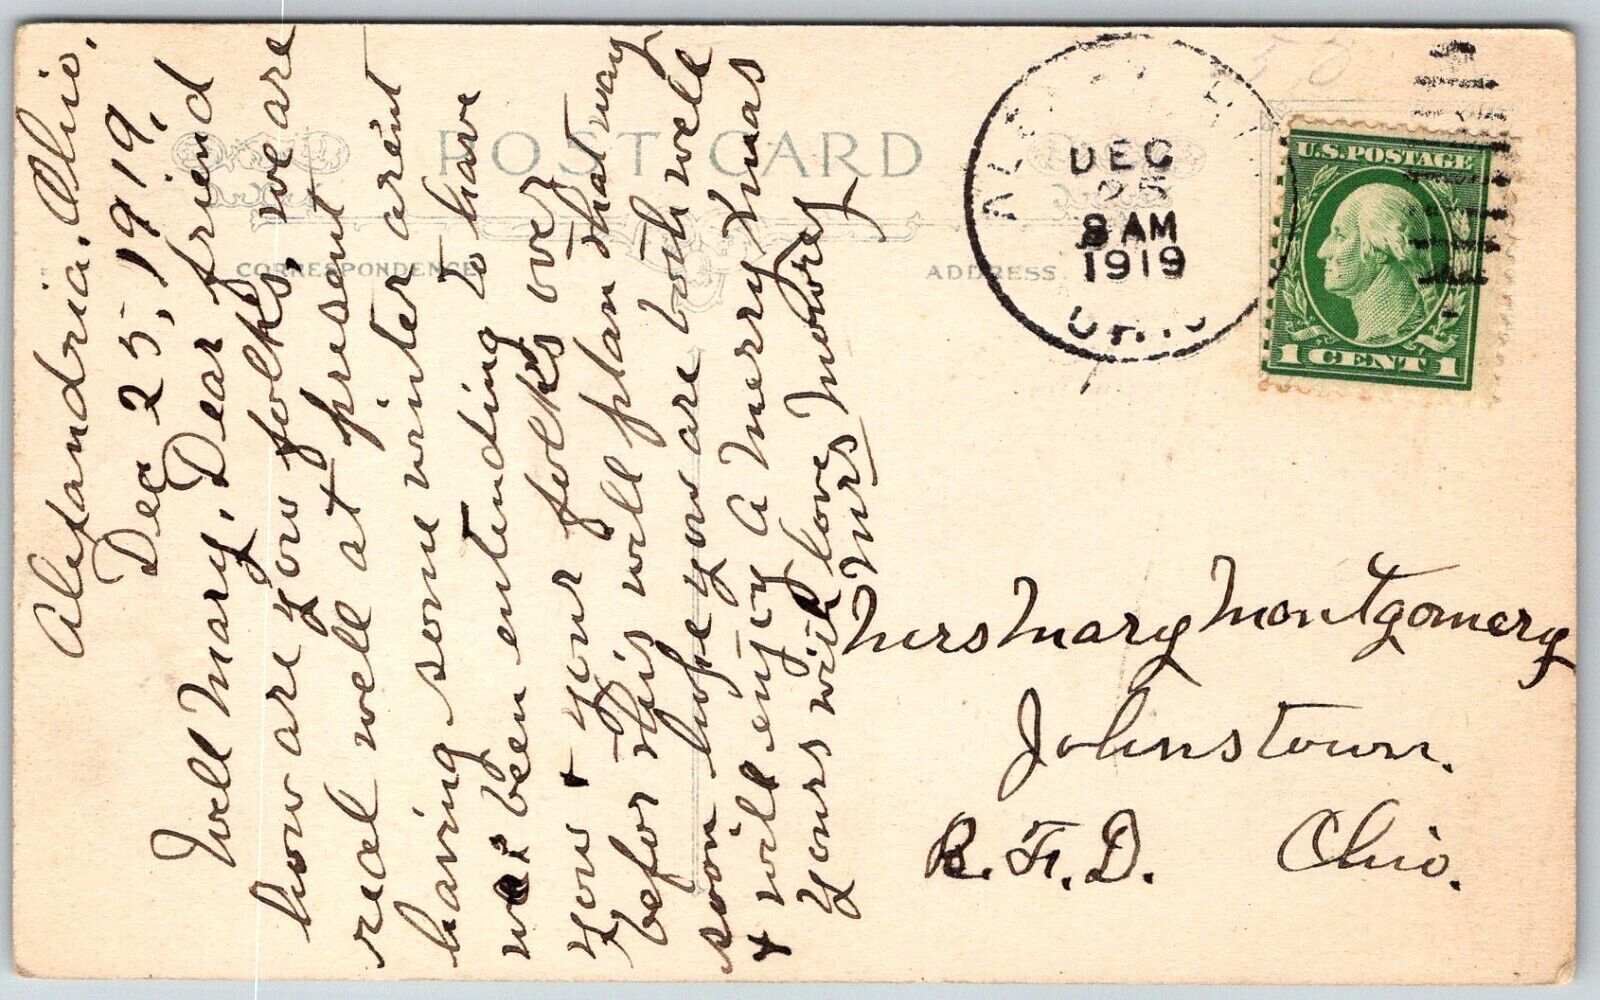 Alexandria. Ohio.
Dec 25, 1919.
Well Mary. Dear friend
how are you folks, we are
real well at present
having some winter arent
we been entending to have
you + your folks over
befor this will plan that way
soon hope you are both well
+ will enjoy a Merry Xmas
yours with love
Mrs Mowrey
POST CARD
CORRESPONDENCE
ADDRESS
DEC
25
8 AM
1919
OHIO
U.S. POSTAGE
1 CENT 1
Mrs Mary Montgomery
Johnstown.
R. F. D. Ohio.